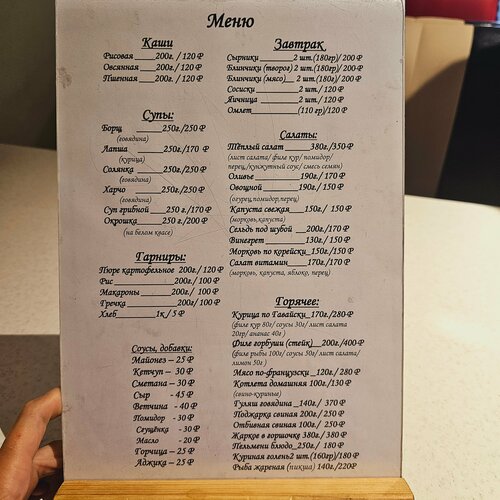 Меню
Каши
Рисовая 200г. / 120 ₽
Овсянная 200г. / 120 ₽
Пшенная 200г. / 120 ₽
Супы:
Борщ 250г./250 ₽
(говядина)
Лапша 250г./170 ₽
(курица)
Солянка 250г./250 ₽
(говядина)
Харчо 250г./250 ₽
(говядина)
Суп грибной 250 г./170 ₽
Окрошка 250 г./200 ₽
(на белом квасе)
Гарниры:
Пюре картофельное 200г./ 120 ₽
Рис 200г./ 100 ₽
Макароны 200г./ 100 ₽
Гречка 200г/ 100 ₽
Хлеб 1к / 5 ₽
Соусы, добавки:
Майонез – 25 ₽
Кетчуп – 30 ₽
Сметана – 30 ₽
Сыр - 45 ₽
Ветчина - 40 ₽
Помидор - 30 ₽
Сгущёнка - 30 ₽
Масло - 20 ₽
Горчица – 25 ₽
Аджика – 25 ₽
Завтрак
Сырники 2 шт.(180гр)/ 200 ₽
Блинчики (творог) 2 шт.(180гр)/ 200 ₽
Блинчики (мясо) 2 шт.(180г)/ 200 ₽
Сосиски 2 шт./ 120 ₽
Яичница 2 шт./ 120 ₽
Омлет (110 гр)/120 ₽
Салаты:
Тёплый салат 380г/350 ₽
(лист салата/ филе кур/ помидор/
перец/кунжутный соус/ смесь семян)
Оливье 190г./ 170 ₽
Овощной 190г./ 150 ₽
(огурец,помидор,перец)
Капуста свежая 150г./ 150 ₽
(морковь,капуста)
Сельдь под шубой 200г./170 ₽
Винегрет 130г./ 150 ₽
Морковь по корейски 150г./150 ₽
Салат витамин 170г./170 ₽
(морковь, капуста, яблоко, перец)
Горячее:
Курица по Гавайски 170г./280 ₽
(филе кур 80г/ соус 30г/ лист салата
20гр/ ананас 40г )
Филе горбуши (стейк) 200г./400 ₽
(филе рыбы 100г/ соус 50г/ лист салата/
лимон 50г )
Мясо по-французски 120г./ 280 ₽
Котлета домашняя 100г./130 ₽
(свино-куриные)
Гуляш говядина 140г./ 370 ₽
Поджарка свиная 200г./ 250 ₽
Отбивная свиная 100г./ 250 ₽
Жаркое в горшочке 380г./ 380 ₽
Пельмени блюдо 250г./ 180 ₽
Куриная голень2 шт.(160гр)/180 ₽
Рыба жареная (пикша) 140г./220₽